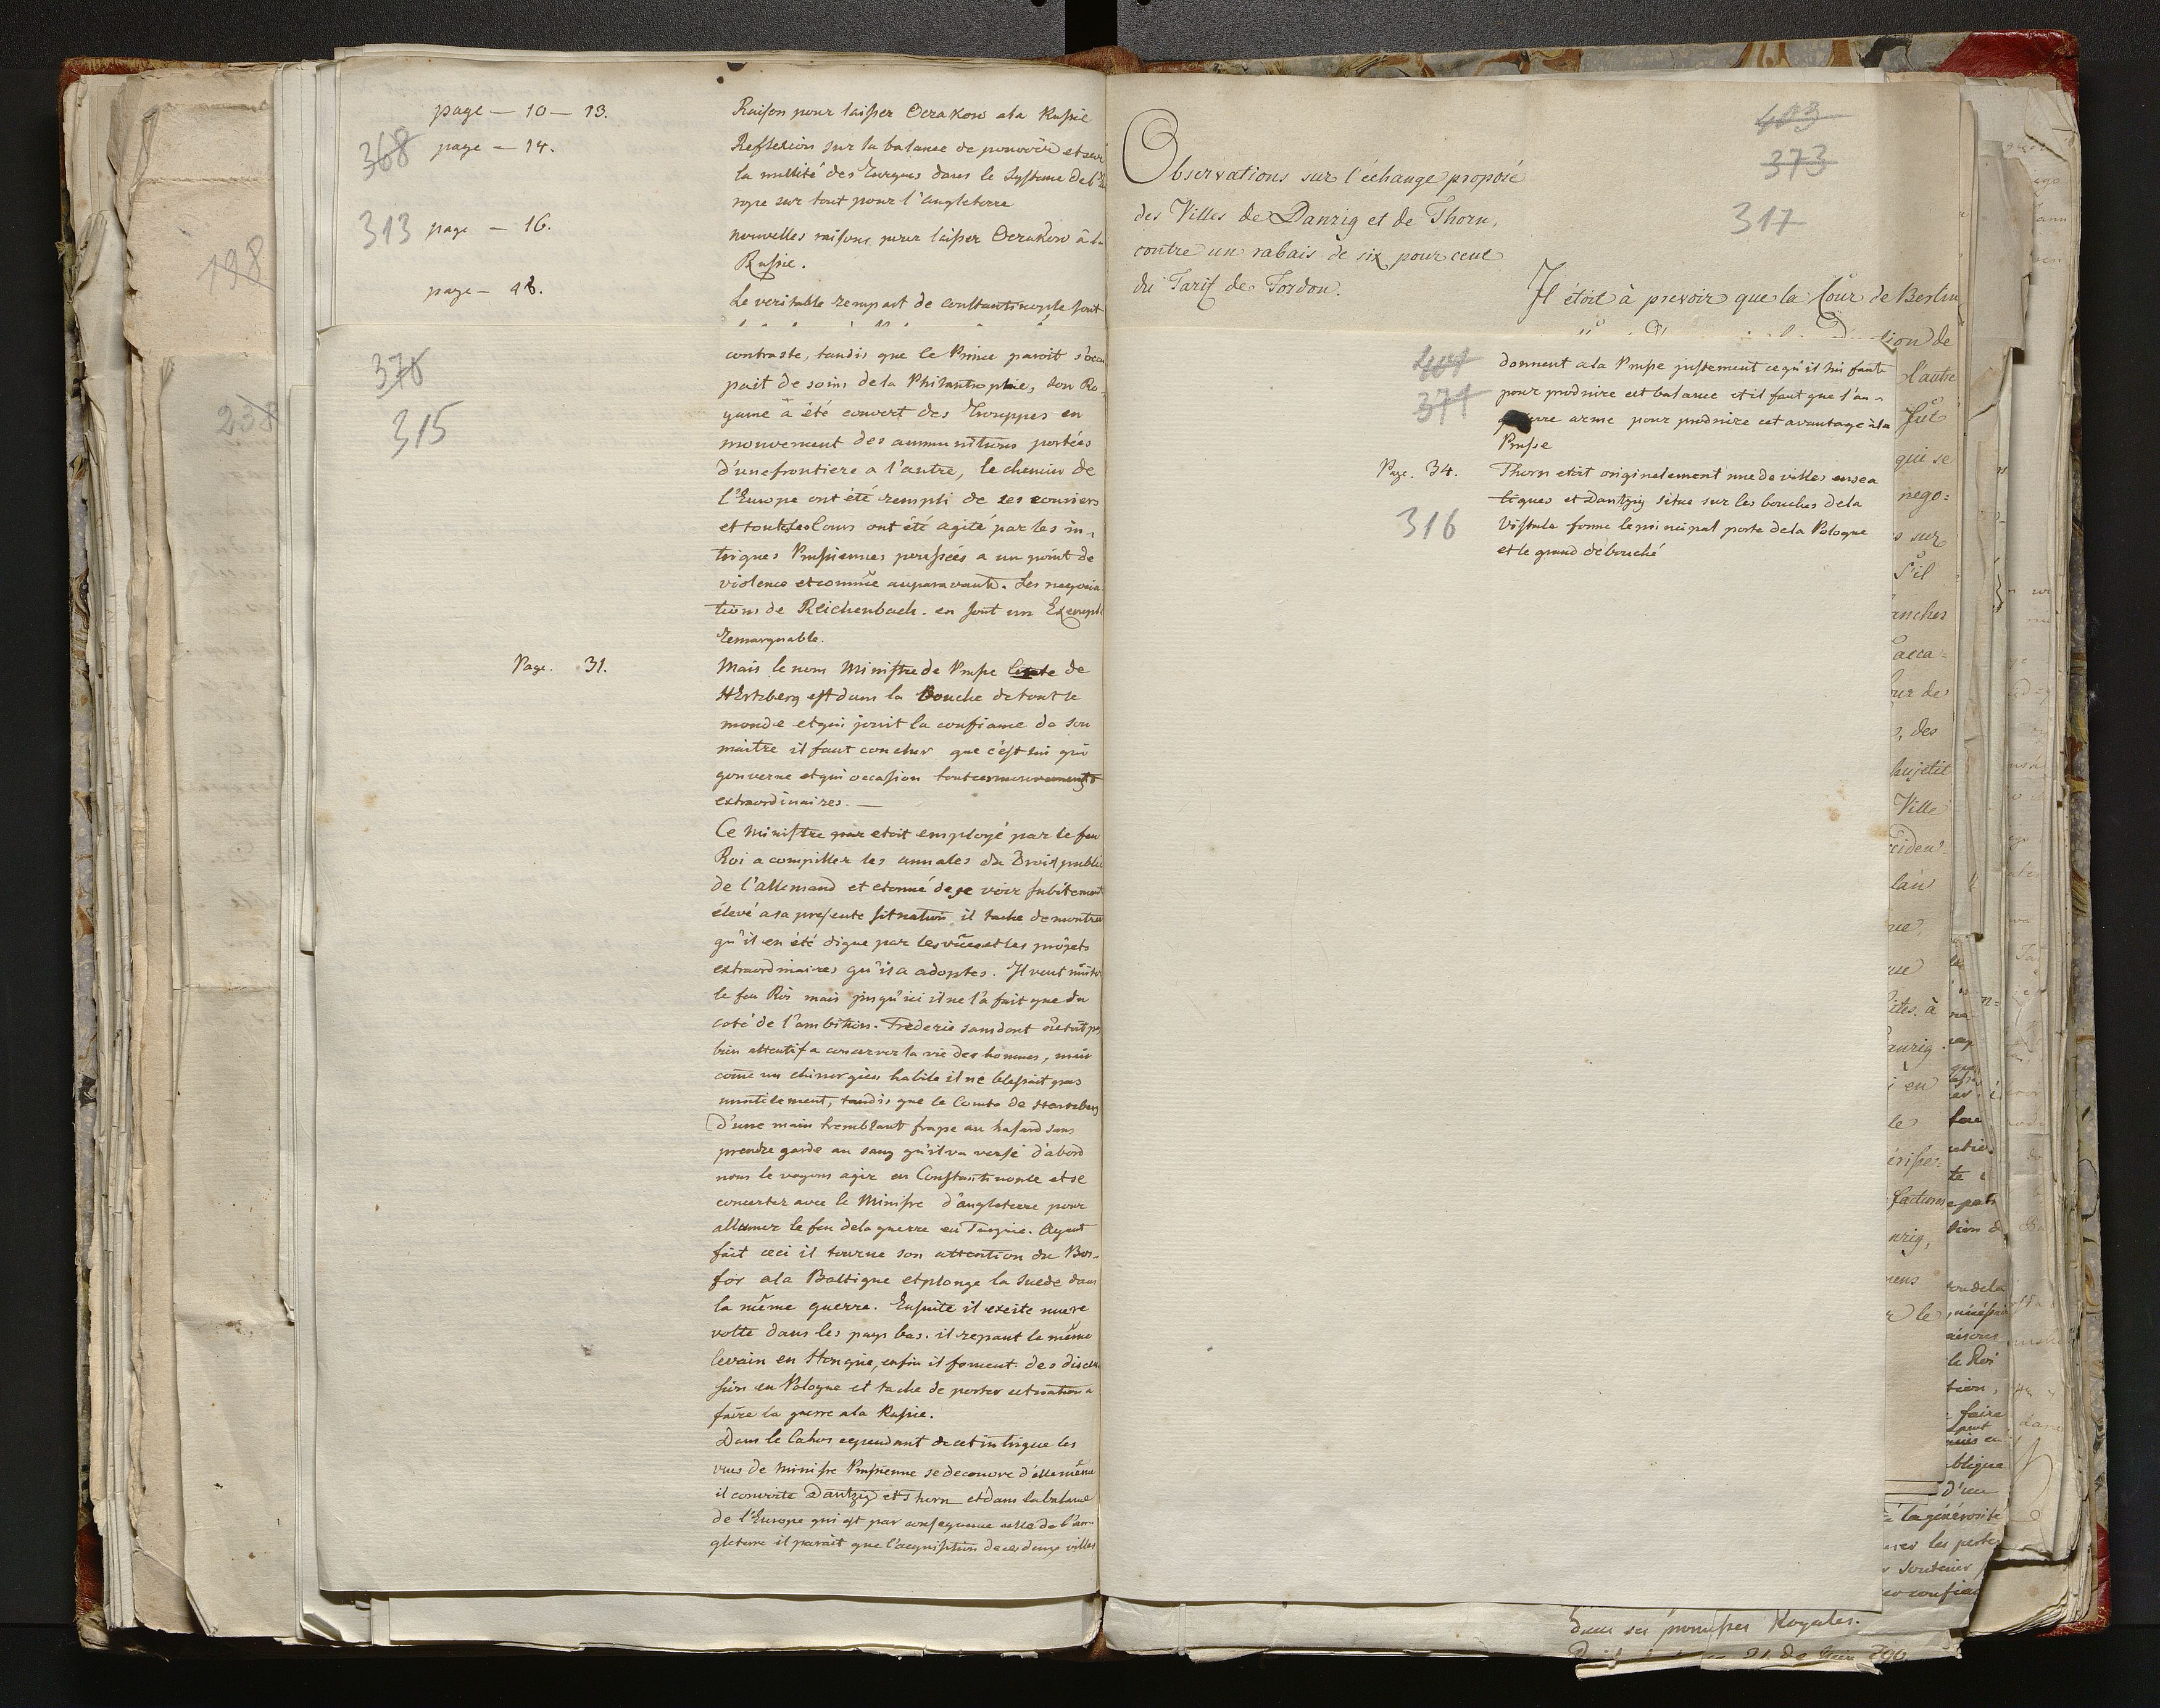 page - 10 - 13.
Raison pour laisser Oczakow a la Russie
368
page - 14.
Reflexion sur la balance de pouvoir et sur
la nullité des Turques dans le Systeme de l'Eu
rope sur tout pour l'angleterre
313
page - 16.
nouvelles raisons pour laisser Oczakow à la
Russie.
page - 18.
Le veritable rempart de constantinople sont
370
315
contraste, tandis que le Prince paroit s'occu
pait de soins de la Philantrophie, son Ro-
yaume à été couvert des Trouppes en
mouvement des ammunitions portées
d'une frontiere a l'autre, le chemin de
l'Europe ont été rempli de ses couriers
et toutes les Cours ont été agité par les in-
trigues Prussiennes poussées a un point de
violence et comme auparavant. Les negocia
tions de Reichenbach en sont un Exemple
remarquable.
Page. 31.
Mais le nom Ministre de Prusse Comte de
Hertzberg est dans la Bouche de tout le
monde et qui jouit la confiance de son
maitre il faut conclure que c'est lui qui
gouverne et qui occasion tout ces mouvements
extraordinaires. -
Ce Ministre etoit employé par le feu
Roi a compiller les annales du Droit public
de l'allemand et etonné de se voir subitement
élevé a sa presente situation il tache de montrer
qu'il en été digne par les vües et les projets
extraordinaires qu'il a adoptes. Il veut imiter
le feu Roi mais jusqu'ici il ne l'a fait que du
coté de l'ambition. Frederic sans dout n'etoit pas
bien attentif a conserver la vie des hommes, mais
come un chirurgien habile il ne blessait pas
inutilement, tandis que le Comte de Hertzberg
d'une main tremblant frape au hasard sans
prendre garde au sang qu'il va versé d'abord
nous le voyons agir en Constantinople et se
concerter avec le Ministre d'angleterre pour
allumer le feu de la guerre en Turquie. Ayant
fait ceci il tourne son attention du Bos-
for a la Baltique et plonge la Suede dans
la même guerre. Ensuite il exeite une re
volte dans les pays bas. il repant le même
levain en Hongrie, enfin il foment des discen
sion en Pologne et tache de porter cet nation a
faire la guerre a la Russie.
Dans le Cahos cependant de cet intrigue les
vues de Ministre Prussienne se decouvre d'elle même
il convoite Dantzig et Thorn et dans la balance
de l'Europe qui est par consequence celle de l'an
gleterre il parait que l'acquisition de ces deux villes
198
238
403
373
317
Observations sur l'échange proposé
des Villes de Danzig et de Thorn,
contre un rabais de six pour cent
du Tarif de Fordon.
Il étoit à prevoir que la Cour de Berlin
404
374
donnent a la Prusse justement ce qu'il lui faut
pour produire cet balance et il faut que l'an-
arme pour produire cet avantage à la
Prusse
Page. 34.
Thorn etoit originalement une de villes ensea
tiques et Dantzig situe sur les bouches de la
316
Vistule forme le principal porte de la Pologne
et le grand débouché
tion de
l'autre
fut
qui se
nego=
s sur
S'il
anches
acca=
de
des
Ville
lain
à
en
le
nzig,
le Roi
faire
blique
d'un
la générosité
les pertes
soutenir
dans ses promesses Royales.